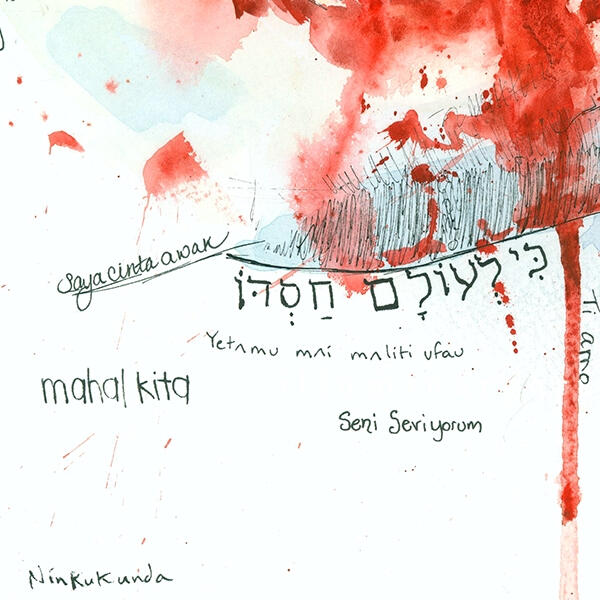 saya cinta awak
כִּי לְעוֹלָם חַסְדּוֹ
Yetamu mai maliti ufau
mahal kita
Seni Seviyorum
Ti amo
Ninkukunda